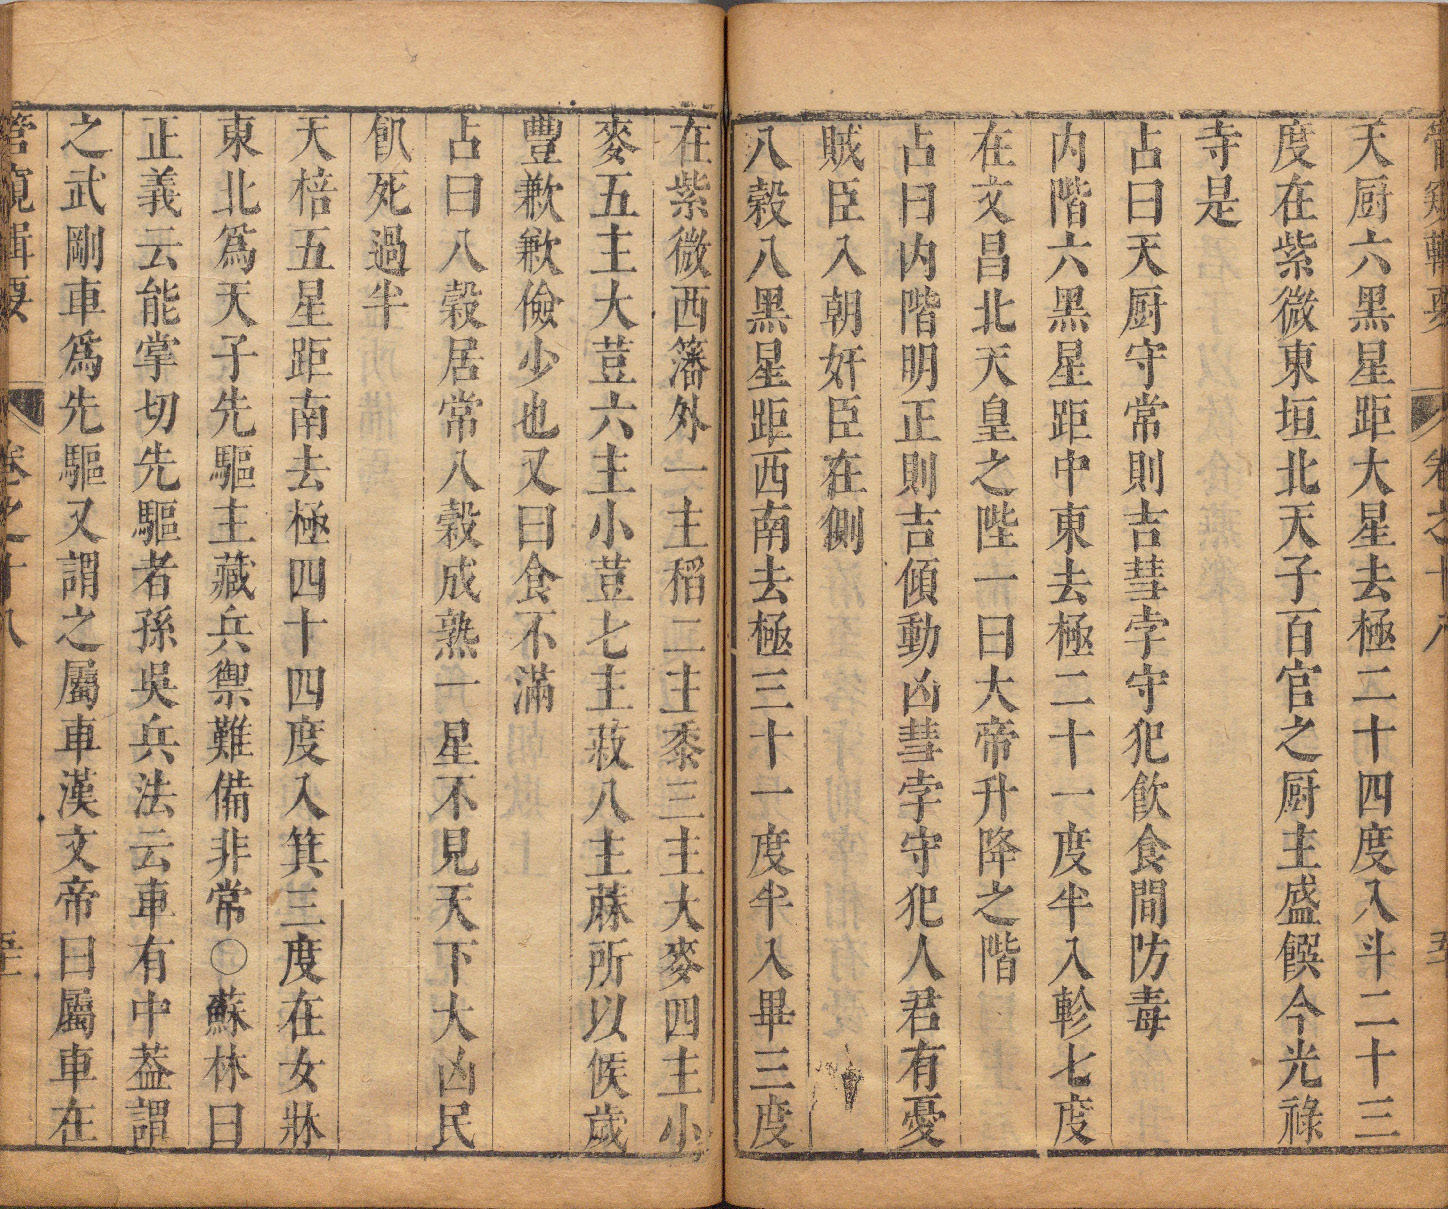 天厨六黑星距大星去極二十四度入斗二十三
度在紫微東垣北天子百官之厨主盛饌今光祿
寺是
占曰天厨守常則吉彗孛守犯飲食間防毒
内階六黑星距中東去極二十一度半入軫七度
在文昌北天皇之陛一曰大帝升降之階
占曰内階明正則吉傾動凶彗孛守犯人君有憂
賊臣入朝奸臣在側
八穀八黑星距西南去極三十一度半入畢三度
在紫微西籓外一主稻二主黍三主大麥四主小
麥五主大荳六主小荳七主菽八主蔴所以候歲
豐歉歉儉少也又曰食不滿
占曰八穀居常八穀成熟一星不見天下大凶民
飢死過半
天棓五星距南去極四十四度入箕三度在女牀
東北爲天子先驅主藏兵禦難備非常○蘇林曰
正義云能掌切先驅者孫吳兵法云車有中葢謂
之武剛車爲先驅又謂之屬車漢文帝曰屬車在
管窺輯要 卷之十八